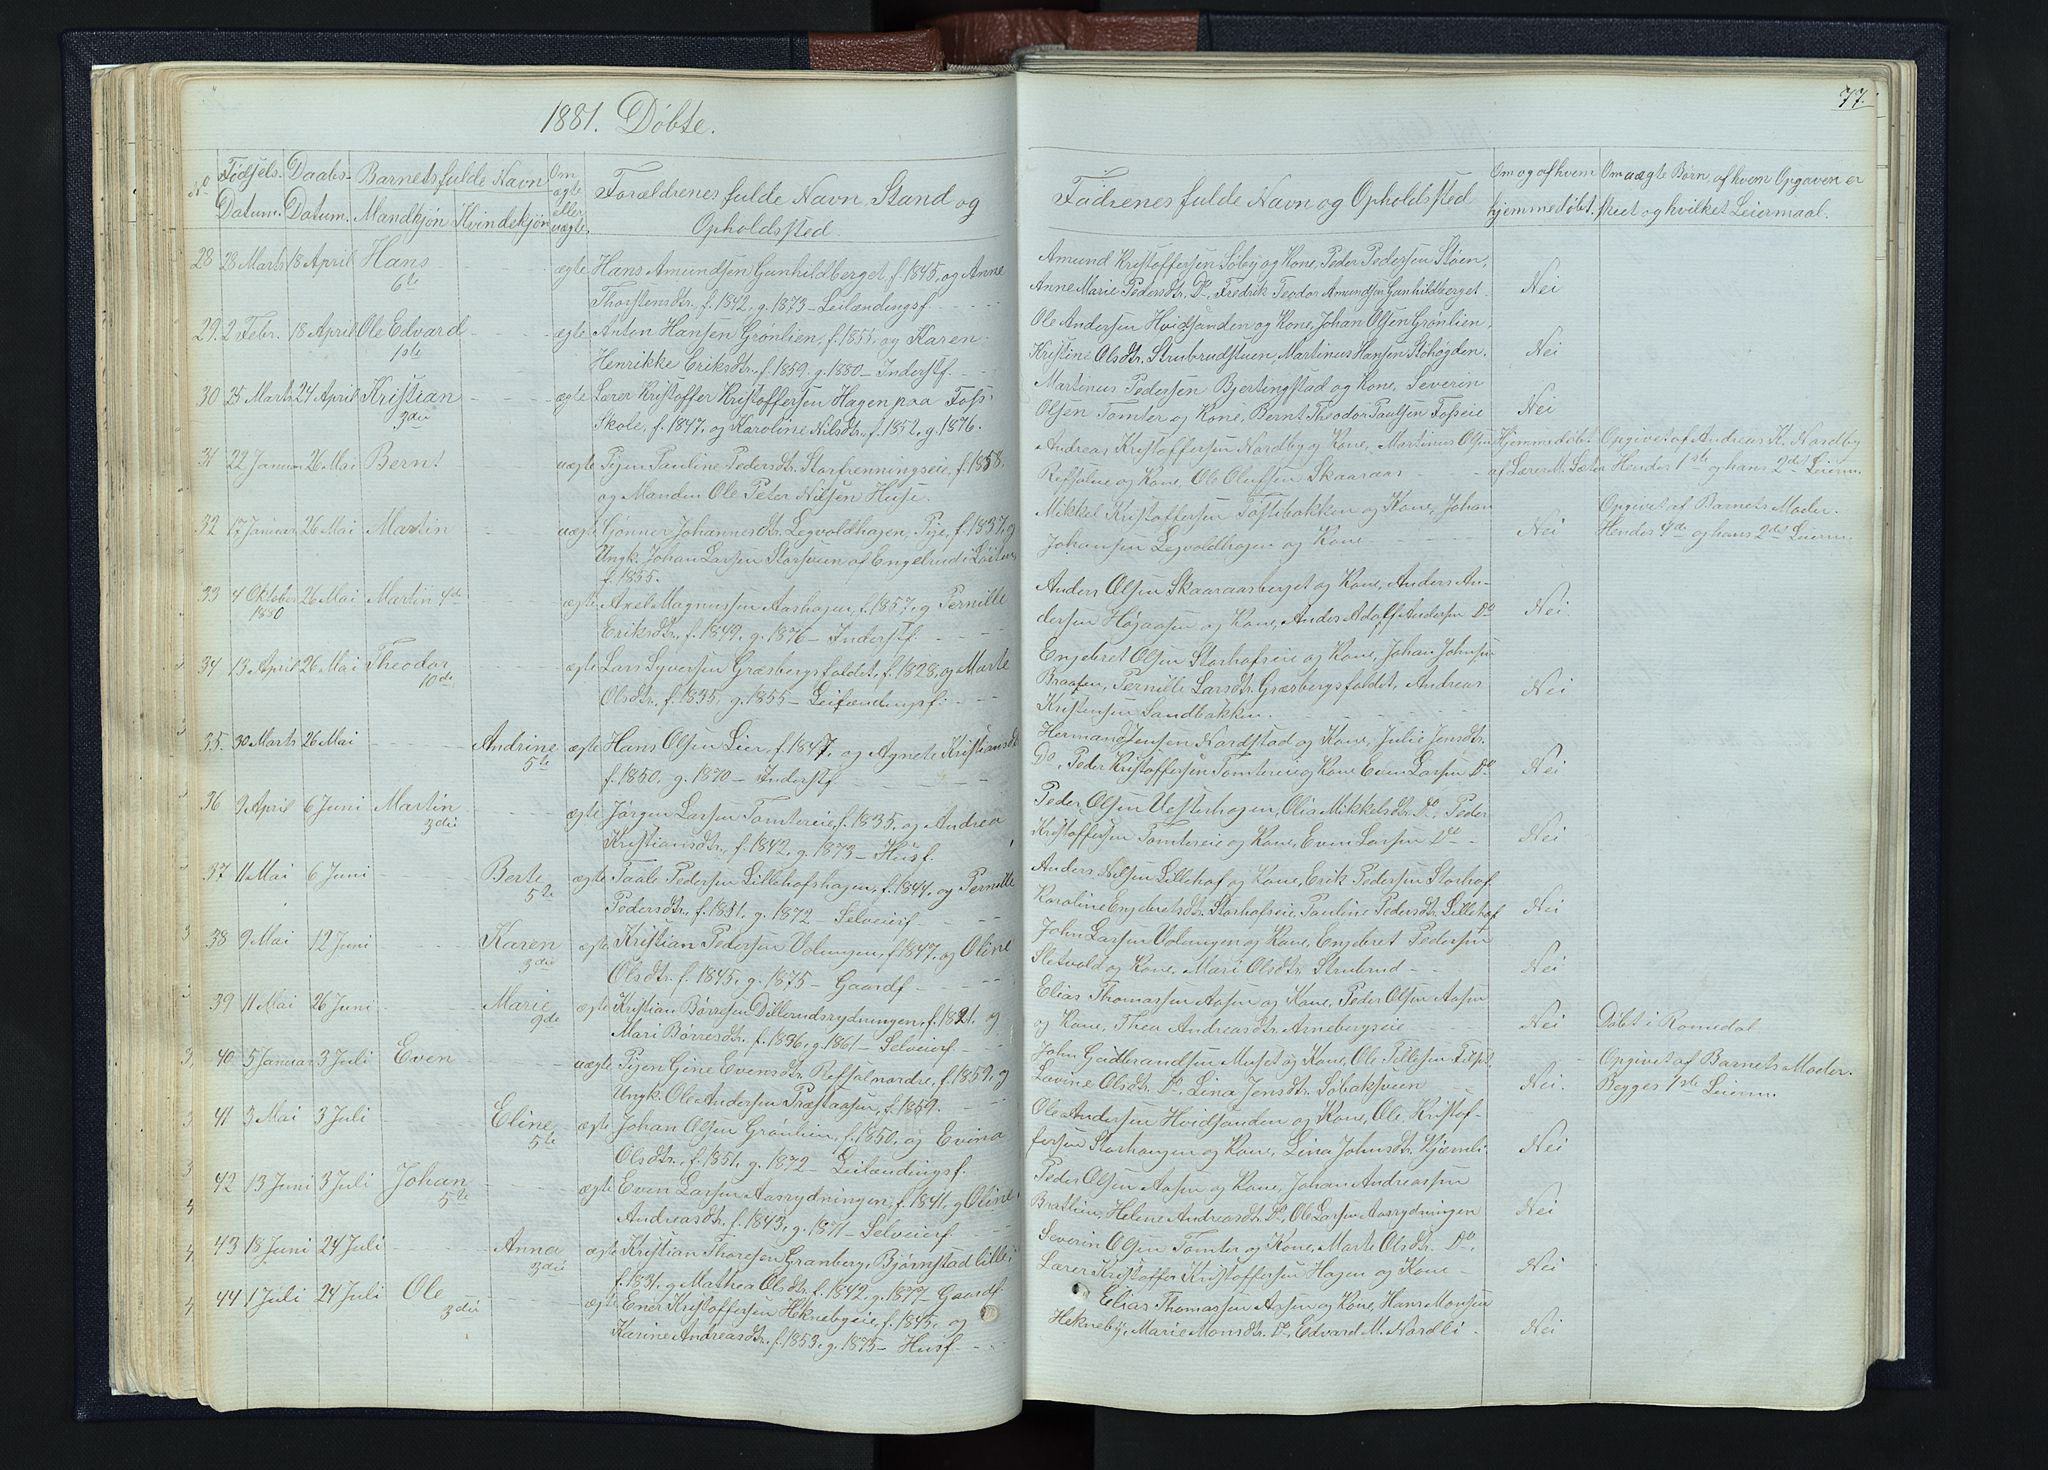 1881. Döbte.
77.
No Födsels- Datum. Daabs- Datum. Barnets fulde Navn Mandkjön Kvindekjön Om ægte eller uægte. Forældrenes fulde Navn, Stand og Opholdssted.
Fadrenes fulde Navn og Opholdssted Om og af hvem hjemmedöbt. Om uægte Börn af hvem Opgaven er skeet og hvilket Leiermaal.
28 28 Marts 18 April Hans 6te ægte Hans Amundsen Gunhildberget, f. 1845, og Anne
Thorstensdtr., f. 1842, g. 1873 – Leilændingsf.
Amund Kristoffersen Söby og Kone, Peder Pedersen Stöen,
Anne Marie Pedersdtr. Do, Fredrik Teodor Amundsen Gunhildberget. Nei
29. 2 Febr. 18 April Ole Edvard 1ste ægte Anton Hansen Grönlien, f. 1855, og Karen
Henrikke Eriksdtr., f. 1859, g. 1880 – Inderstf.
Ole Andersen Hvidsanden og Kone, Johan Olsen Grönlien,
Kristine Olsdtr. Strubrudstuen, Martinus Hansen Stöhögden. Nei
30 25 Marts 24 April Kristian 3die ægte Lærer Kristoffer Kristoffersen Hagen paa Fos-
Skole, f. 1847, og Karoline Nilsdtr., f. 1852, g. 1876.
Martinus Pedersen Bjertingstad og Kone, Severin
Olsen Tomter og Kone, Bernt Theodor Paulsen Fosseie Nei
31 22 Januar 26 Mai Bernt uægte Pigen Pauline Pedersdtr. Storfrenningseie, f. 1858.
og Manden Ole Peter Nilsen Huse.
Andreas Kristoffersen Nordby og Kone, Martinus Olsen Hjemmedöbt Opgivet af Andreas K. Nordby
Refsalne og Kone, Ole Olufsen Skaaraas af Lærer M. Sæter Hendes 1ste og hans 2det Leierm.
32 17 Januar 26 Mai Martin uægte Gjönner Johannesdtr. Legvoldhagen, Pige, f. 1837, og
Ungk. Johan Larsen Storsveen af Engelrud i Löiten,
f. 1855.
Mikkel Kristoffersen Toftebakken og Kone, Johan Opgivet af Barnets Moder.
Johansen Legvoldhagen og Kone Nei Hendes 4de og hans 2det Leierm.
33 4 Oktober 1880 26 Mai Martin 4de ægte Axel Magnussen Aashagen, f. 1857, g Pernille
Eriksdtr., f. 1849, g. 1876 – Inderstf.
Anders Olsen Skaaraasberget og Kone, Anders An-
dersen Höjaasen og Kone, Anders Adolf Andersen Do Nei
34 13 April 26 Mai Theodor 10de ægte Lars Syversen Græsbergsfaldet, f. 1828, og Marte
Olsdtr., f. 1835, g. 1855 – Leilændingsf.
Engebret Olsen Storhofseie og Kone, Johan Johnsen
Braaten, Pernille Larsdtr. Græsbergsfaldet, Andreas
Kristensen Sandbakken. Nei
35. 30 Marts 26 Mai Andrine 5te ægte Hans Olsen Lier, f. 1847, og Agnete Kristiansdtr.
f. 1850, g. 1870 – Inderstf.
Herman Jensen Nordstad og Kone, Julie Jensdtr.
Do, Peder Kristoffersen Tomtereie og Kone, Even Larsen Do Nei
36 9 April 6 Juni Martin 3die ægte Jörgen Larsen Tomtereie, f. 1835, og Andrea
Kristiansdtr., f. 1842, g. 1873 – Husf.
Peder Olsen Uesterhagen, Olia Mikkelsdtr. Do, Peder
Kristoffersen Tomtereie og Kone, Even Larsen Do Nei
37 11 Mai 6 Juni Berte 5te ægte Taale Pedersen Lillehofshagen, f. 1844, og Pernille
Pedersdtr., f. 1851, g. 1872 – Selveierf.
Anders Nilsen Lillehof og Kone, Erik Pedersen Storhof
Karoline Engebretsdtr. Storhofseie, Pauline Pedersdtr. Lillehof Nei
38 9 Mai 12 Juni Karen 3die ægte Kristian Pedersen Volungen, f. 1847, og Oline
Olsdtr. f. 1845, g. 1875 – Gaardf.
John Larsen Volungen og Kone, Engebret Pedersen
Sletvold og Kone, Mari Olsdtr. Strubrud Nei
39 11 Mai 26 Juni Marie 9de ægte Kristian Börresen Dillerudsrydningen, f. 1821. og
Mari Börresdtr., f. 1836, g. 1861 – Selveierf.
Elias Thomassen Aasen og Kone, Peder Olsen Aasen
og Kone, Thea Andreasdtr. Arnebergseie Nei Döbt i Romedal
40 5 Januar 3 Juli Even uægte Pigen Gine Evensdtr. Refsal nordre, f. 1859, og
Ungk. Ole Andersen Præstaasen, f. 1859.
John Gudbrandsen Muset og Kone, Ole Pillesen Opgivet af Barnets Moder.
Lovine Olsdtr. Do, Lina Jensdtr. Söbaksveen Nei. Begges 1ste Leierm.
41 3 Mai 3 Juli Eline 5te ægte Johan Olsen Grönlien, f. 1850, og Evina
Olsdtr., f. 1851, g. 1872 – Leilændingsf.
Ole Andersen Hvidsanden og Kone, Ole Kristof-
fersen Storhaugen og Kone, Lina Johnsdtr. Hjæmli. Nei
42 13 Juni 3 Juli Johan 5te ægte Even Larsen Aasrydningen, f. 1841, g Oline
Andreasdtr. f. 1843, g. 1871 – Selveierf.
Peder Olsen Aasen og Kone, Johan Andreassen
Bratlien, Helene Andreasdtr. Do, Ole Larsen Aasrydningen Nei
43 18 Juni 24 Juli Anna 3die ægte Kristian Thoresen Granberg, Björnstad lille,
f. 1831, g Mathea Olsdtr. f. 1842, g. 1877 – Gaardf.
Severin Olsen Tomter og Kone, Marte Olsdtr. Do,
Lærer Kristoffer Kristoffersen Hagen og Kone Nei
44 1 Juli 24 Juli Ole 3die ægte Ener Kristoffersen Heknebyeie, f. 1845, og
Karine Andreasdtr. f. 1853, g. 1875 – Husf.
Elias Thomassen Aasen og Kone, Hans Monsen
Hekneby, Marie Monsdtr. Do, Edvard M. Nordli Nei